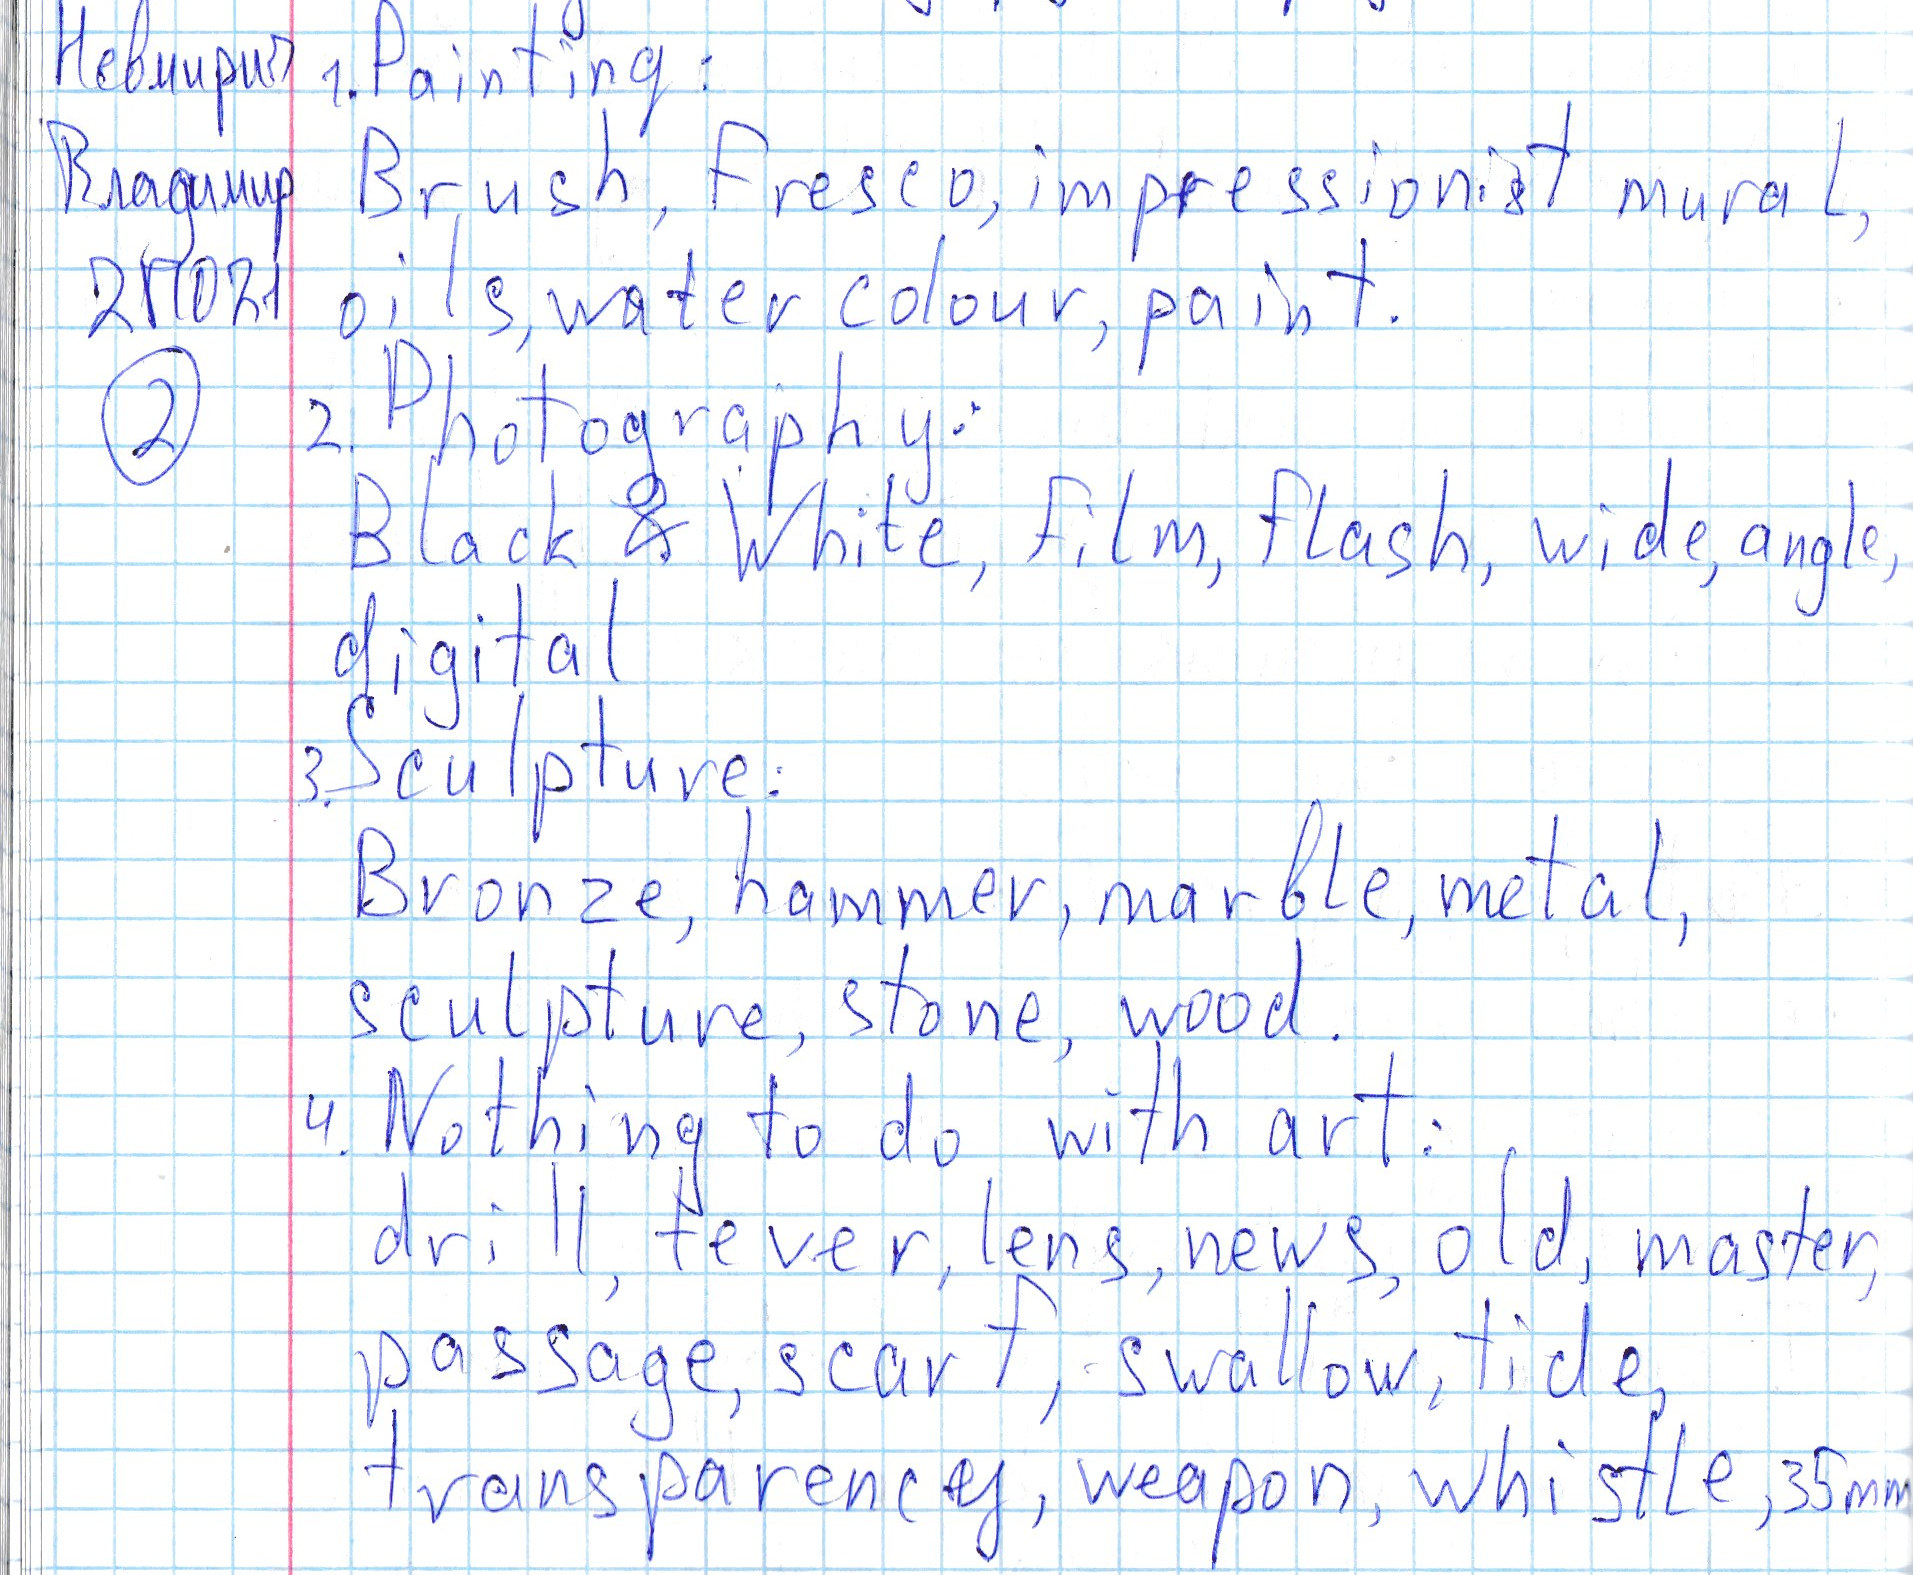 Невмирич
Владимир
2П021
2
1. Painting:
Brush, Fresco, impressionist mural,
oils, water colour, paint.
2. Photography:
Black & White, film, flash, wide, angle,
digital
3. Sculpture:
Bronze, hammer, marble, metal,
sculpture, stone, wood.
4. Nothing to do with art:
drill, fever, lens, news, old, master,
passage, scarf, swallow, tide,
transparency, weapon, whistle, 35mm